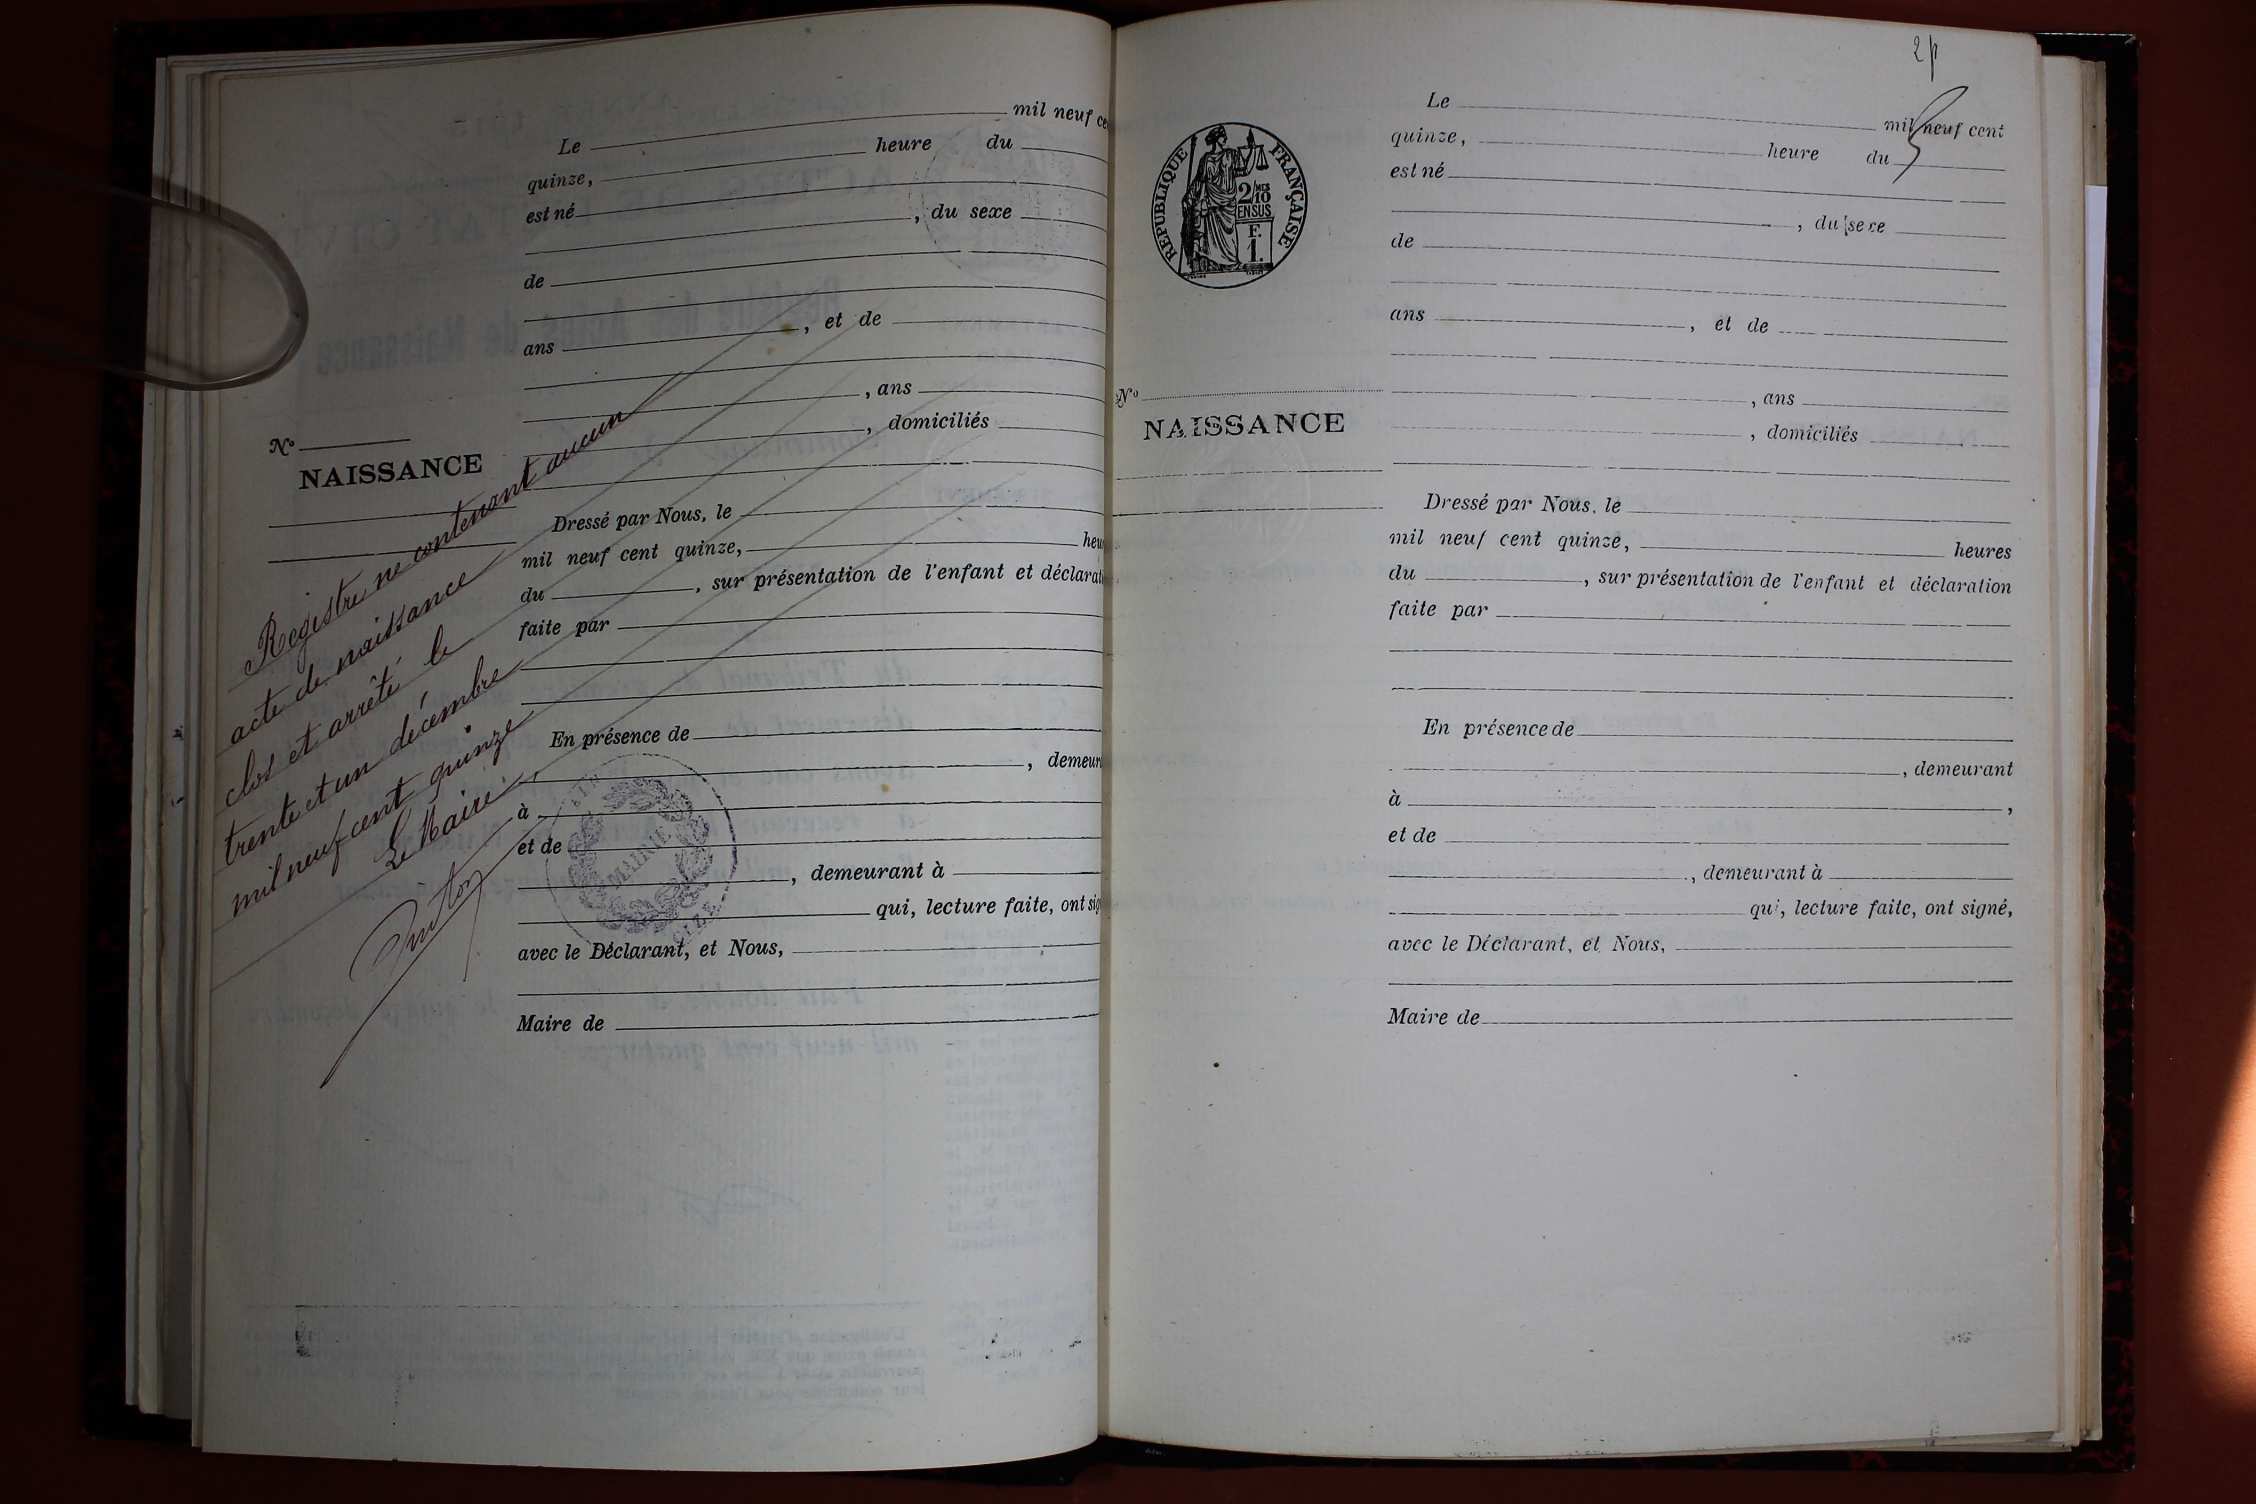 Le mil neuf ce
quinze, heure du
est né
, du sexe
de
ans , et de
, ans
, domiciliés
Nº
NAISSANCE
Dressé par Nous, le
mil neuf cent quinze, heu
du , sur présentation de l'enfant et déclarat
faite par
En présence de
, demeur
à
et de
, demeurant à
qui, lecture faite, ont sig
avec le Déclarant, et Nous,
Maire de
Registre ne contenant aucun
acte de naissance
clos et arrêté le
trente et un décembre
mil neuf cent quinze
Le Maire
MAIRIE
CIZE
2
Le mil neuf cent
quinze, heure du
est né
, du sexe
de
ans , et de
, ans
, domiciliés
RÉPUBLIQUE FRANÇAISE
2/10 MES
EN SUS
F.
1.
Nº
NAISSANCE
Dressé par Nous, le
mil neuf cent quinze, heures
du , sur présentation de l'enfant et déclaration
faite par
En présence de
, demeurant
à ,
et de
, demeurant à
qui, lecture faite, ont signé,
avec le Déclarant, et Nous,
Maire de